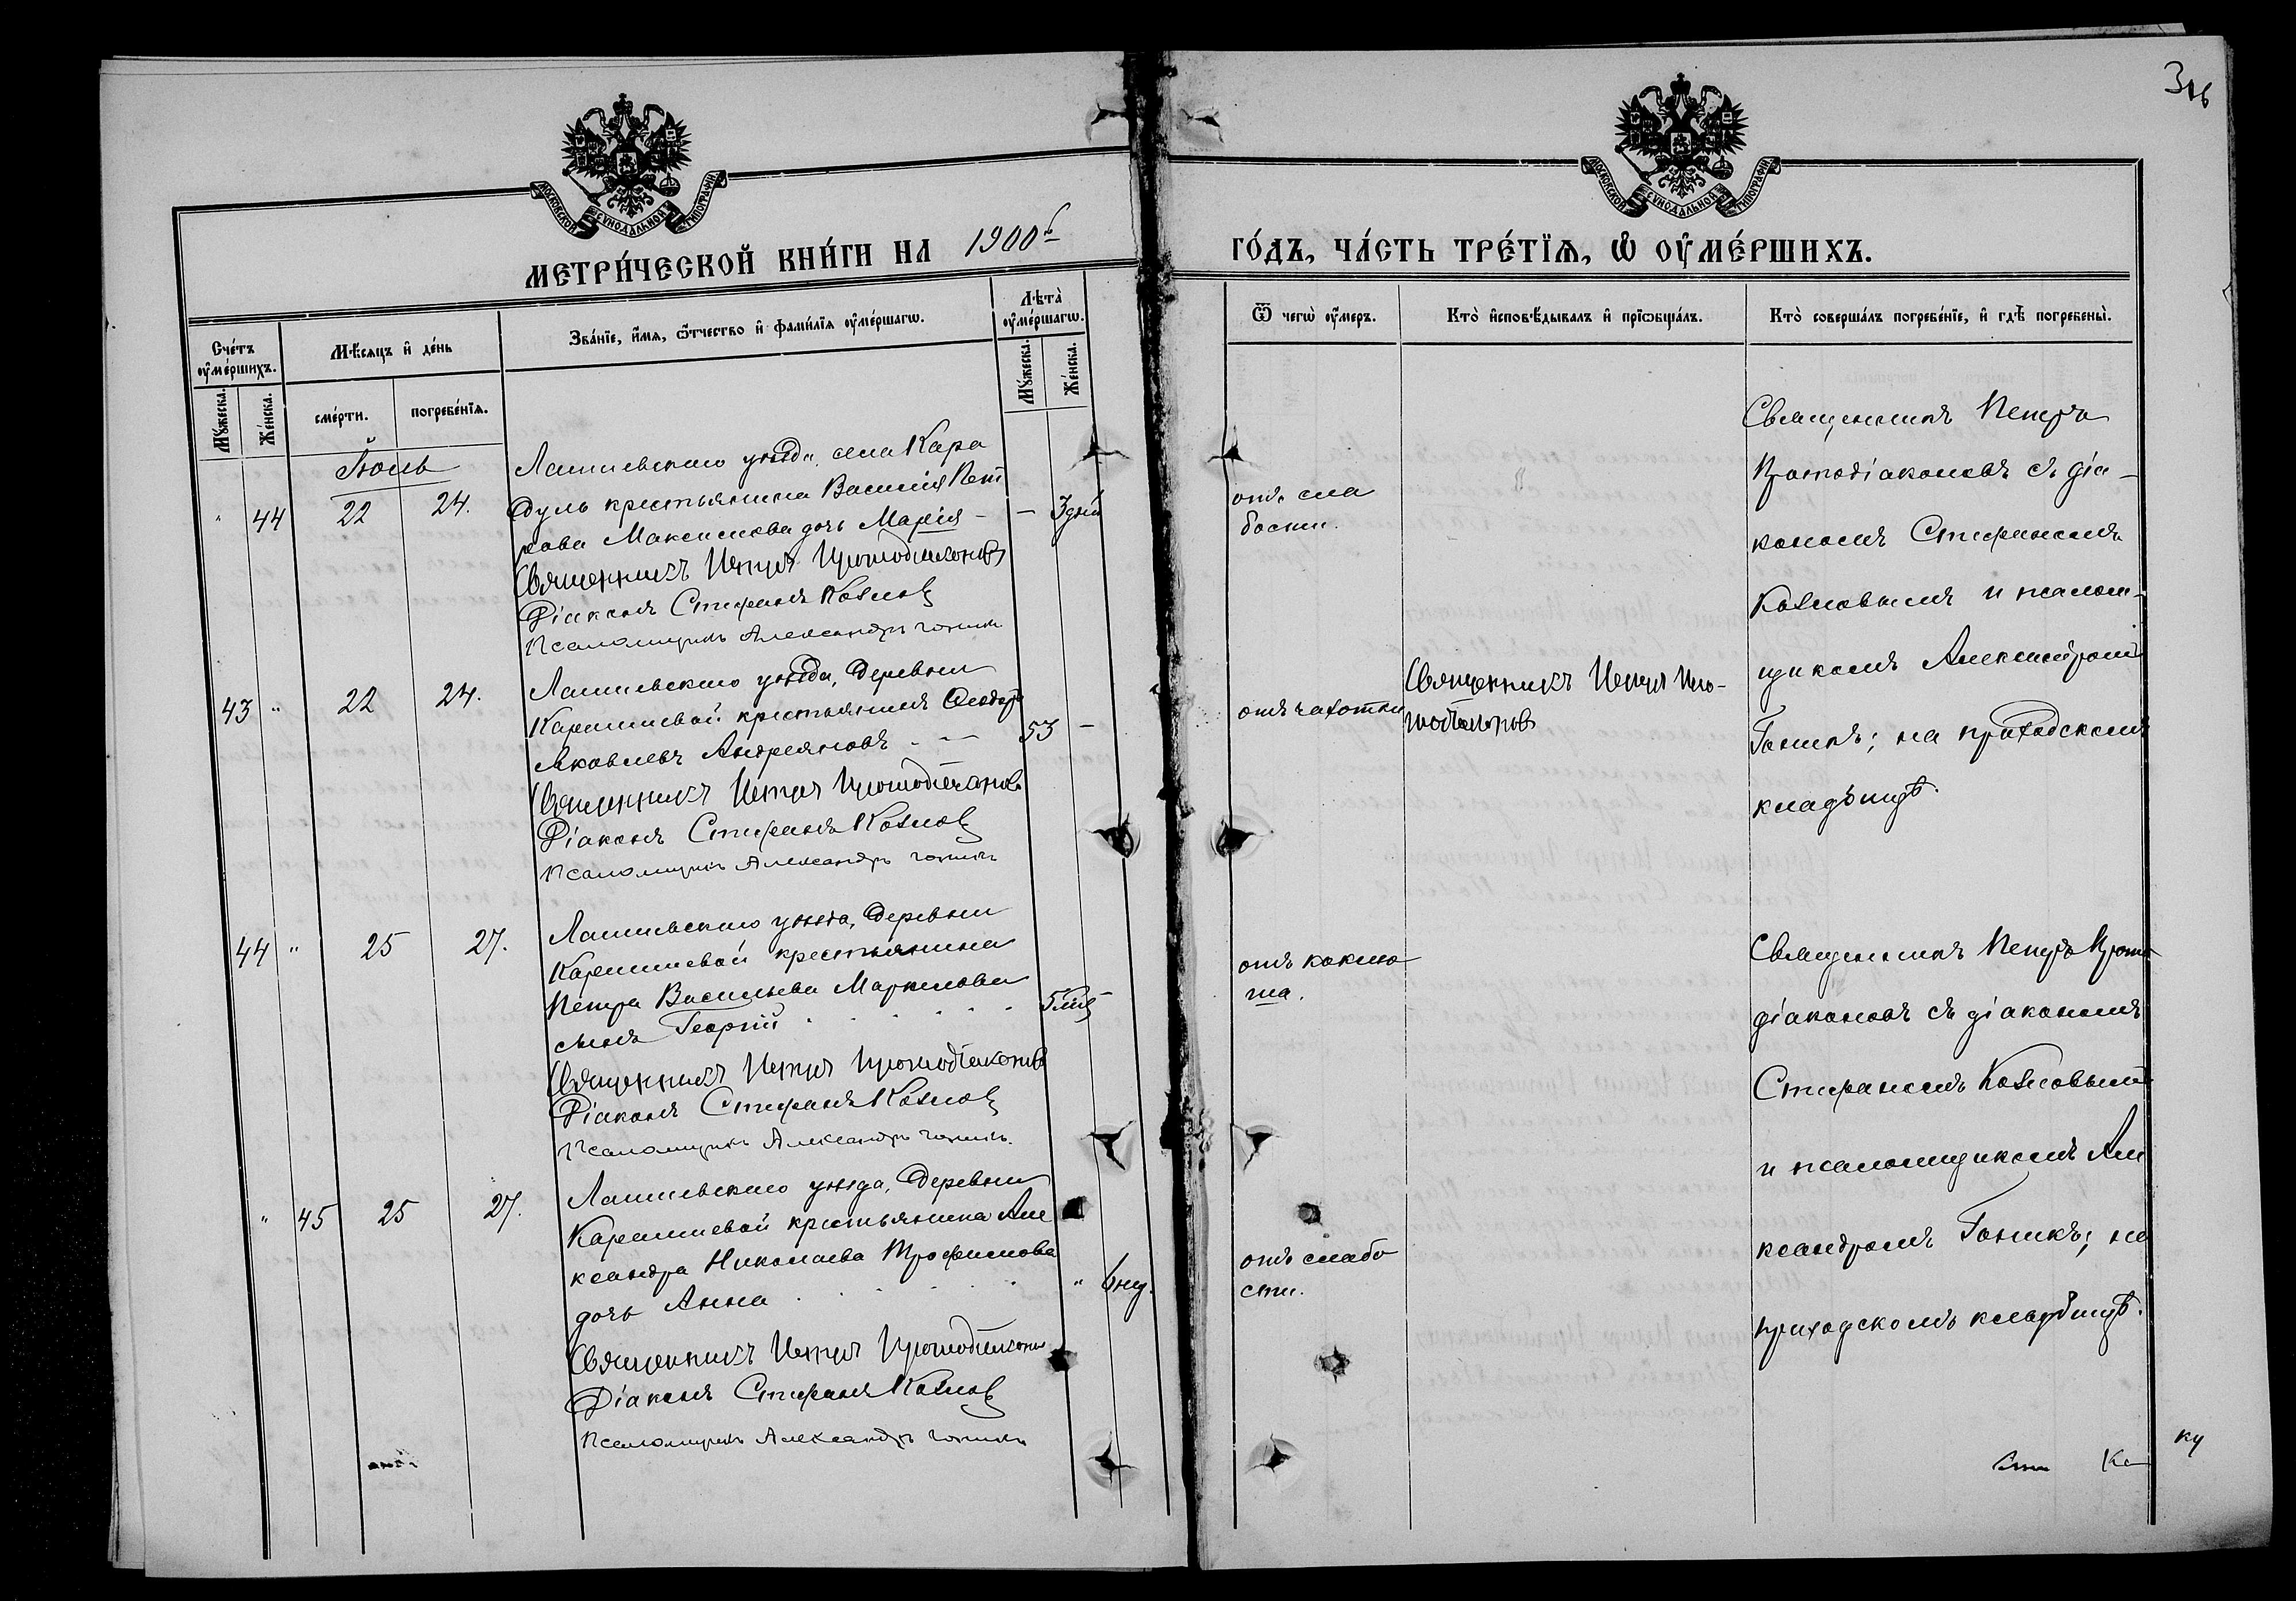 316
МОСКОВСКОЙ СѴНОДАЛЬНОЙ ТИПОГРАФІИ
МОСКОВСКОЙ СѴНОДАЛЬНОЙ ТИПОГРАФІИ
МЕТРИ́ЧЕСКОЙ КНИ́ГИ НА 1900й
ГО́ДЪ, ЧА́СТЬ ТРЕ́ТЇѦ, Ѽ ОУ҆МЕ́РШИХЪ.
Сче́тъ оу҆ме́ршихъ.
Мꙋ́жеска.
Же́нска.
Мѣ́сѧцъ и҆ де́нь
сме́рти.
погребе́нїѧ.
Зва́нїе, и҆́мѧ, ѻ҆́тчество и҆ фами́лїѧ оу҆ме́ршагѡ.
Лѣта̀ оу҆ме́ршагѡ.
Мꙋ́жеска.
Же́нска.
Ѿ чегѡ̀ оу҆́меръ.
Кто̀ и҆сповѣ́дывалъ и҆ прїѡбща́лъ.
Кто̀ соверша́лъ погребе́нїе, и҆ гдѣ̀ погребены̀.
Іюль
" 44 22 24.
Лаишевскаго уѣзда, села Кара
дуль крестьянина Василія Пет
рова Максимова дочь Марія - — 3 дней
Священникъ Петръ Протодіаконовъ
Діаконъ Стефанъ Козлов
Псаломщикъ Александръ Гоникъ
отъ сла
бости.
"
Священникъ Петръ
Протодіаконовъ съ діа-
кономъ Стефаномъ
Козловымъ и псалом-
щикомъ Александромъ
Гоникъ; на приходскомъ
кладбищѣ.
43 " 22 24.
Лаишевскаго уѣзда, деревни
Карашевой крестьянинъ Ѳеодоръ
Яковлевъ Андреяновъ - — 53 -
Священникъ Петръ Протодіаконовъ
Діаконъ Стефанъ Козлов
Псаломщикъ Александръ Гоникъ
отъ чахотки
Священникъ Петръ Про-
тодіаконовъ
44 " 25 27.
Лаишевскаго уѣзда, деревни
Карашевой крестьянина
Петра Васильева Маркелова
сынъ Георгій . . . . . 5 лѣтъ
Священникъ Петръ Протодіаконовъ
Діаконъ Стефанъ Козлов
Псаломщикъ Александръ Гоникъ.
отъ коклю
ша.
Священникъ Петръ Прото
діаконовъ съ діакономъ
Стефаномъ Козловымъ
и псаломщикомъ Але
ксандромъ Гоникъ; на
приходскомъ кладбищѣ.
" 45 25 27.
Лаишевскаго уѣзда, деревни
Карашевой крестьянина Але
ксандра Николаева Трофимова
дочь Анна . . . . . " 6 нед.
Священникъ Петръ Протодіаконовъ
Діаконъ Стефанъ Козлов
Псаломщикъ Александръ Гоникъ
отъ слабо
сти.